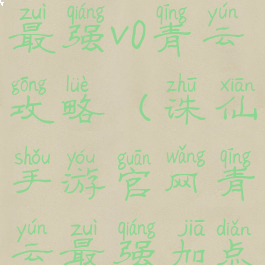 zuì qiáng qīng yún
最强v0青云
gōng lüè zhū xiān
攻略(诛仙
shǒu yóu guān wǎng qīng
手游官网青
yún zuì qiáng jiā diǎn
云最强加点